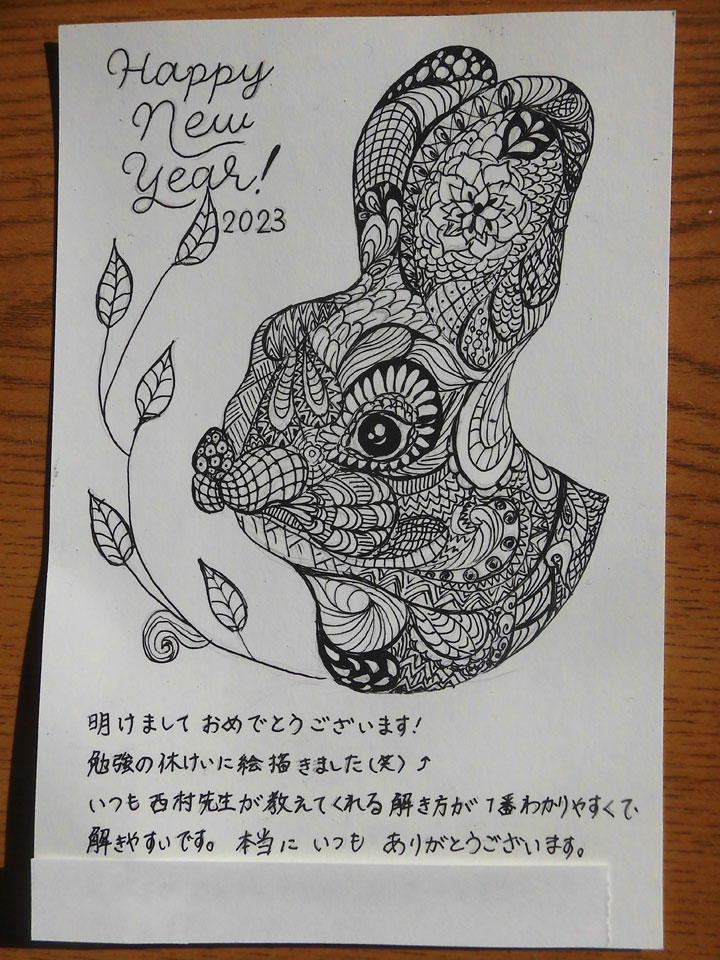 Happy
New
Year!
2023
明けまして おめでとうございます!
勉強の休けいに絵描きました(笑)⤴
いつも 西村先生が教えてくれる解き方が1番わかりやすくで
解きやすいです。 本当に いつも ありがとうございます。